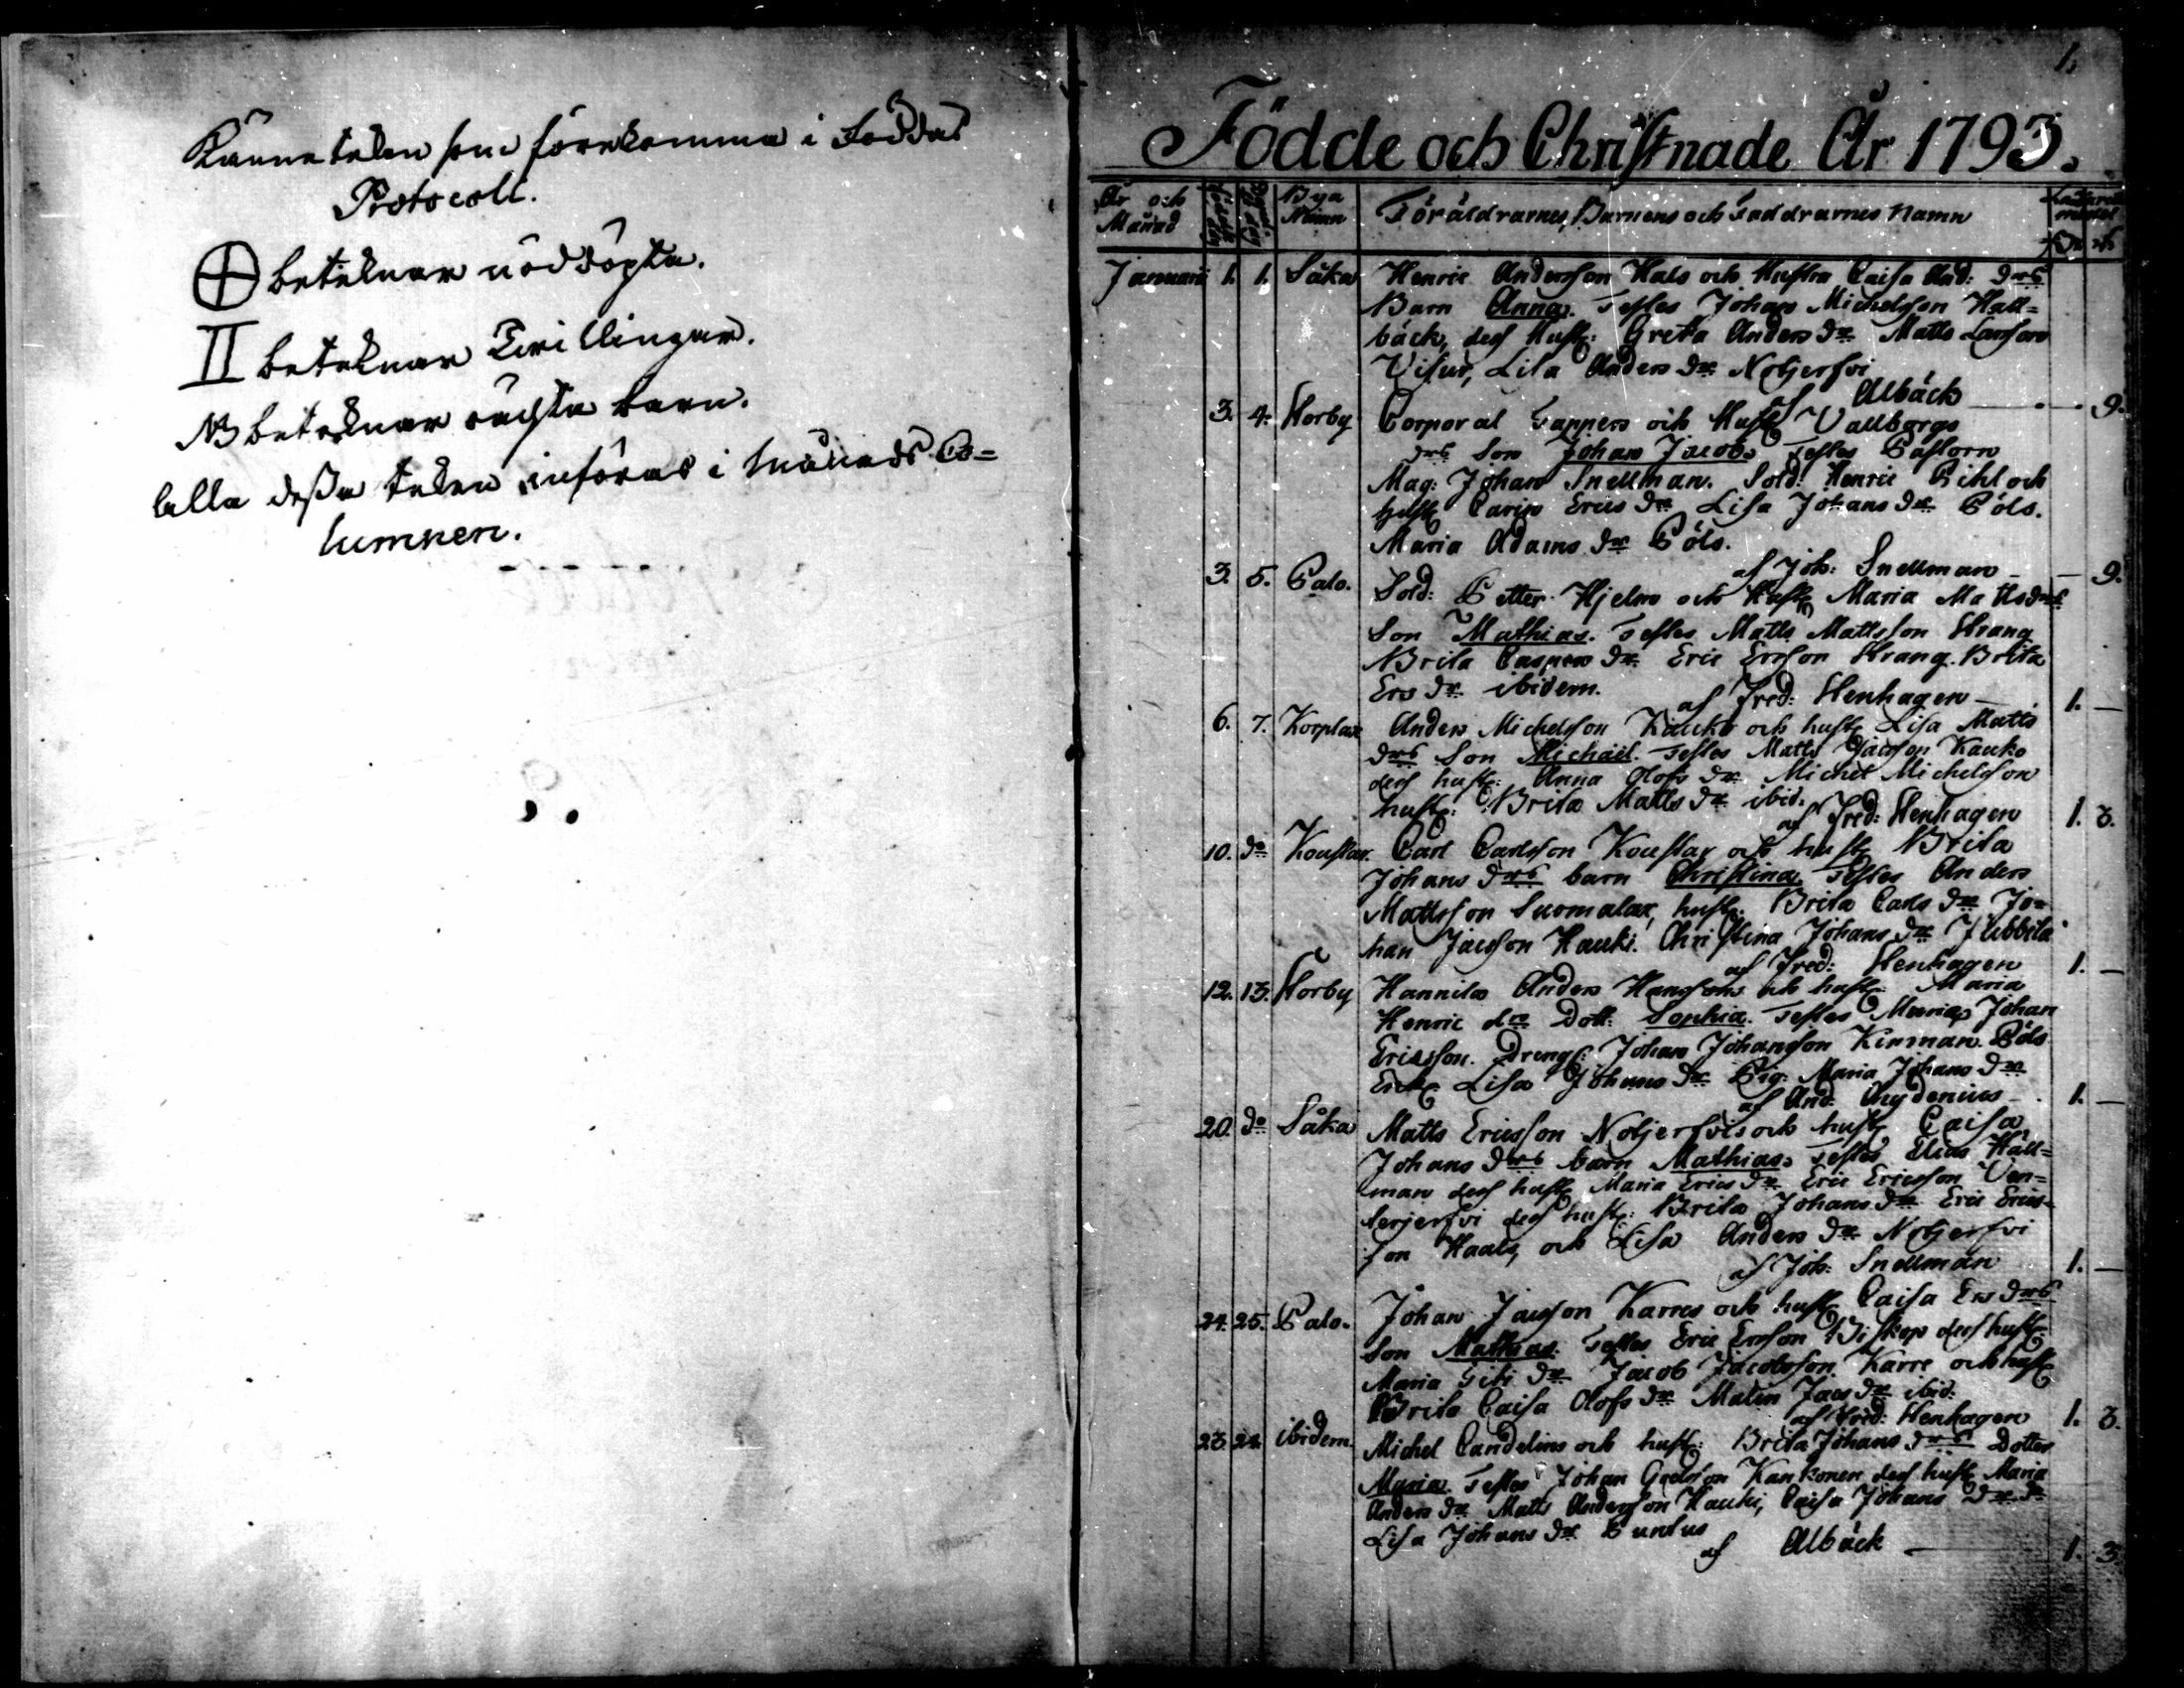 Känneteken som förekomma i Föddas
Protocoll.
⊕ beteknar nöddöpta.
II beteknar Tvillingar.
NB betecknar oächta barn.
Alla dessa teken införas i Månads Co=
lumnen.
1.
Födde och Christnade År 1793.
År och Månad
Bya Namn
Föräldrarnes, Barnens och Faddrarnes Namn
Januarii 1. 1. Såka Henric Andersson Hals och Hustru Caisa And: drs
Barn Anna. Testes Johan Michelsson Hall=
bäck, dess Hust: Greta Anders dr Matts Larsson
Visur, Lisa Anders dr Notjerfvi
Albäck 9.
3. 4. Storby Corporal Tappers och Hust Vallborgs
drs Son Johan Jacob. Testes Pastorn
Mag: Johan Snellman. Sold: Henric Pihl och
hust Carin Erics dr Lisa Johans dr Pöls.
Maria Adams dr Pöls.
af Joh: Snellman 9.
3. 5. Palo. Sold: Petter Hjelm och Hust Maria Matts drs
Son Mathias. Testes Matts Mattsson Strang
Brita Caspers dr Eric Ersson Strang. Brita
Ers dr ibidem.
af Fred: Stenhagen 1. —
6. 7. Korplax Anders Michelsson Kauko och hust Lisa Matts
drs Son Michäel. Testes Matts Jacsson Kauko
dess hust: Anna Olofs dr Michel Michelsson
hust: Brita Matts dr ibid.
af Fred: Stenhagen 1. 3.
10. do Koustar. Carl Carlsson Koustar och hust Brita
Johans drs barn Christina Testes Anders
Mattsson Suomalax, hust: Brita Carls dr Jo=
han Jacsson Hauki. Christina Johans dr Jubbila
af Fred: Stenhagen 1. —
12. 13. Storby Hannila Anders Hansson och hust: Maria
Henric dr Dott: Sophia. Testes Johan
Ericsson. Dreng: Johan Johansson Kinman. Pöls
Lisa Johans dr Pig: Maria Johans dr
af And: Chydenius 1. —
20. do Såka Matts Ericsson Notjerfvis och hust Caisa
Johans drs barn Mathias. Testes Elias Häll=
man dess hust Maria Erics dr Eric Ericsson Ven=
terjerfvi dess hust: Brita Johans dr Eric Erics=
son Haals, och Lisa Anders dr Notjerfvi
af Joh: Snellman 1. —
24. 25. Palo. Johan Jacsson Karres och hust Caisa Ers drs
Son Mathias. Testes Eric Ersson Biskop dess hust
Maria dr Jacob Jacobsson Karre och hust
Brita Caisa Olofs dr Malin Jacs dr ibid.
af Fred: Stenhagen 1. 3.
23. 24. ibidem. Michel Candelins och hust: Brita Johans drs Dotter
Maria. Testes Johan Kankonen dess hust Maria
Anders dr Matts Andersson Hauki, Caisa Johans dr
Lisa Johans dr Pundus
af Albäck 1. 3.